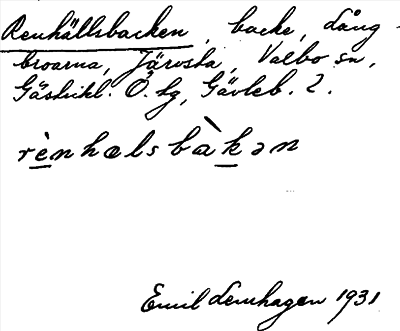 Renhällsbacken, backe, Lång-
broarna, Järvsta, Valbo sn,
Gästrikl. Ö. tg, Gävleb. l.
rènhælsbàkən
Emil Lennhagen 1931